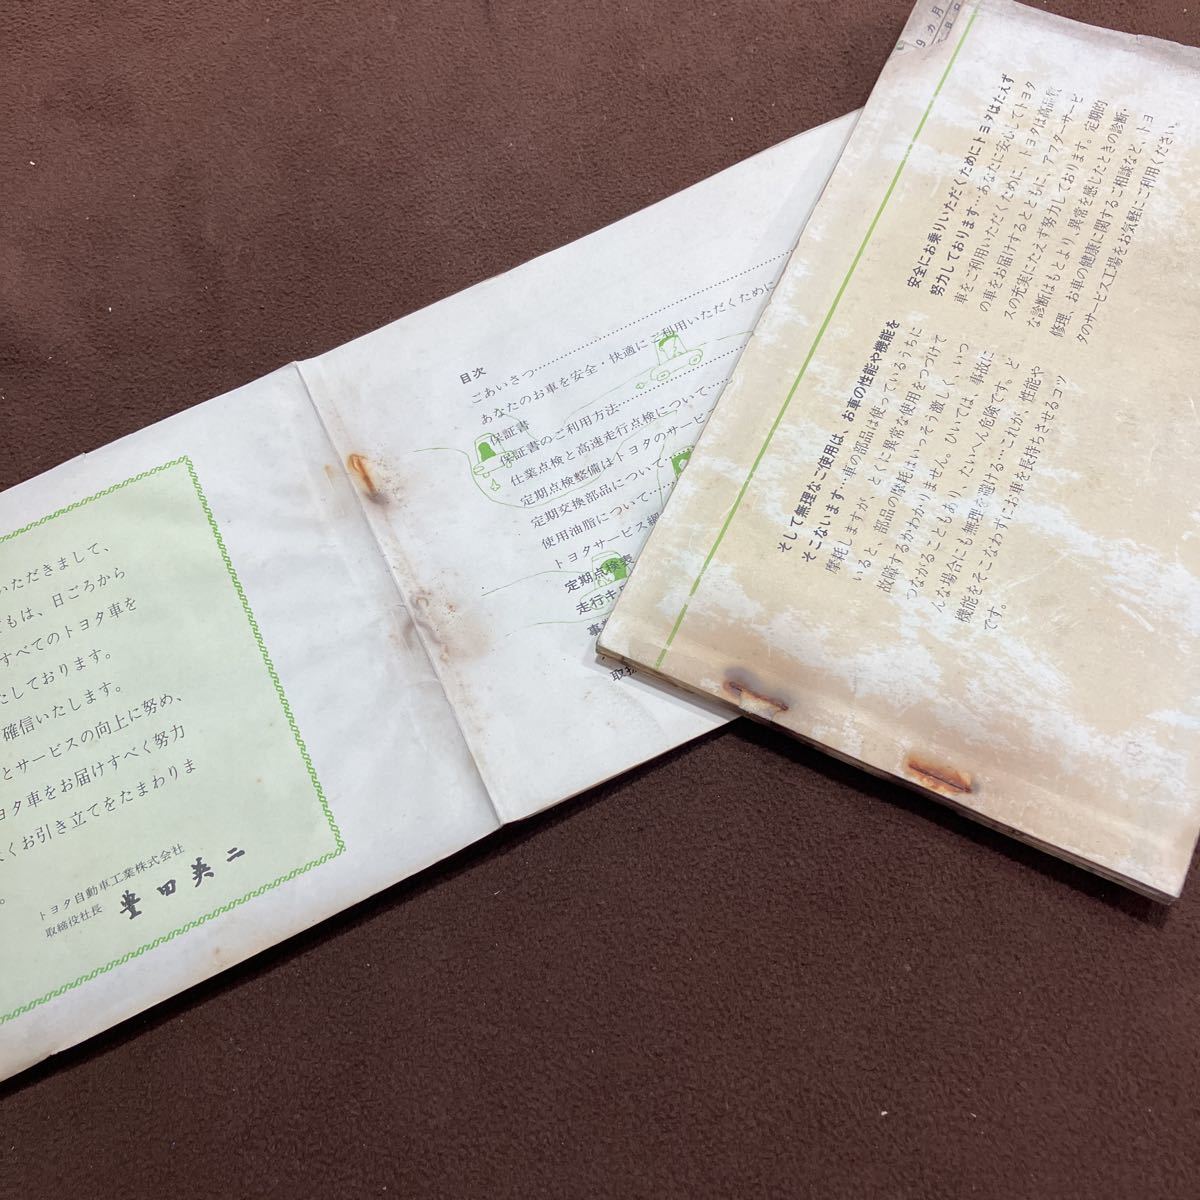 いただきまして、
もは、日ごろから
すべてのトヨタ車を
たしております。
確信いたします。
とサービスの向上に努め、
ヨタ車をお届けすべく努力
くお引き立てをたまわりま
トヨタ自動車工業株式会社
取締役社長 豊田英二
目次
ごあいさつ
あなたのお車を安全・快適にご利用いただくために
保証書
保証書のご利用方法
仕業点検と高速走行点検について
定期点検整備はトヨタのサービス
定期交換部品について
使用油脂について
トヨタサービス網
定期点検表
走行キ
取扱
9カ月
安全にお乗りいただくためにトヨタはたえず
努力しております…あなたに安心してトヨタ
車をご利用いただくために、トヨタは高品質
の車をお届けするとともに、アフターサービ
スの充実にたえず努力しております。定期的
な診断はもとより、異常を感じたときの診断・
修理、お車の健康に関するご相談など、トヨ
タのサービス工場をお気軽にご利用ください。
そして無理なご使用は、お車の性能や機能を
そこないます…車の部品は使っているうちに
摩耗しますが、とくに異常な使用をつづけて
いると、部品の摩耗はいっそう激しく、いつ
故障するかわかりません。ひいては、事故に
つながることもあり、たいへん危険です。ど
んな場合にも無理を避ける…これが、性能や
機能をそこなわずにお車を長持ちさせるコツ
です。